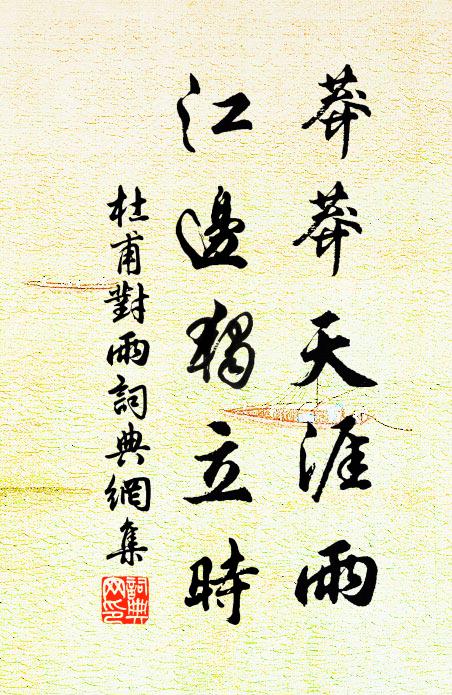 莽莽天涯雨
江邊獨立時
杜甫對雨詞典網集
詞典
网印